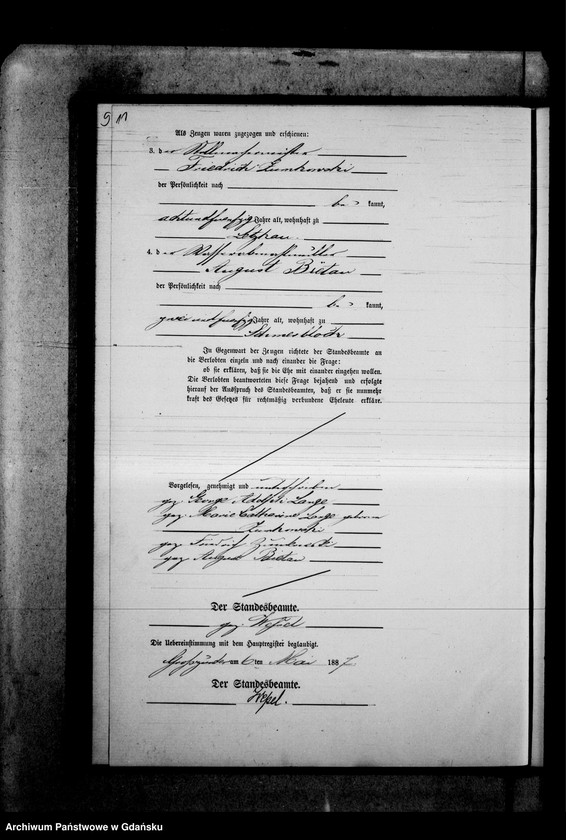 9 M
Als Zeugen waren zugezogen und erschienen:
3. der
Friedrich Zunkowski
der Persönlichkeit nach
be kannt,
achtundfunfzig Jahre alt, wohnhaft zu
Letzkau
4. der
August Bretau
der Persönlichkeit nach
be kannt,
zweiundfunfzig Jahre alt, wohnhaft zu
In Gegenwart der Zeugen richtete der Standesbeamte an
die Verlobten einzeln und nach einander die Frage:
ob sie erklären, daß sie die Ehe mit einander eingehen wollen.
Die Verlobten beantworteten diese Frage bejahend und erfolgte
hierauf der Ausspruch des Standesbeamten, daß er sie nunmehr
kraft des Gesetzes für rechtmäßig verbundene Eheleute erkläre.
Vorgelesen, genehmigt und unterschrieben
gez George Adolph Lange
gez Marie Catharina Lange geborene
Zunkowski
gez Friedrich Zunkowski
gez August Bretau
Der Standesbeamte.
gez.
Die Uebereinstimmung mit dem Hauptregister beglaubigt.
am 6 ten Mai 1887
Der Standesbeamte.
Archiwum Państwowe w Gdańsku